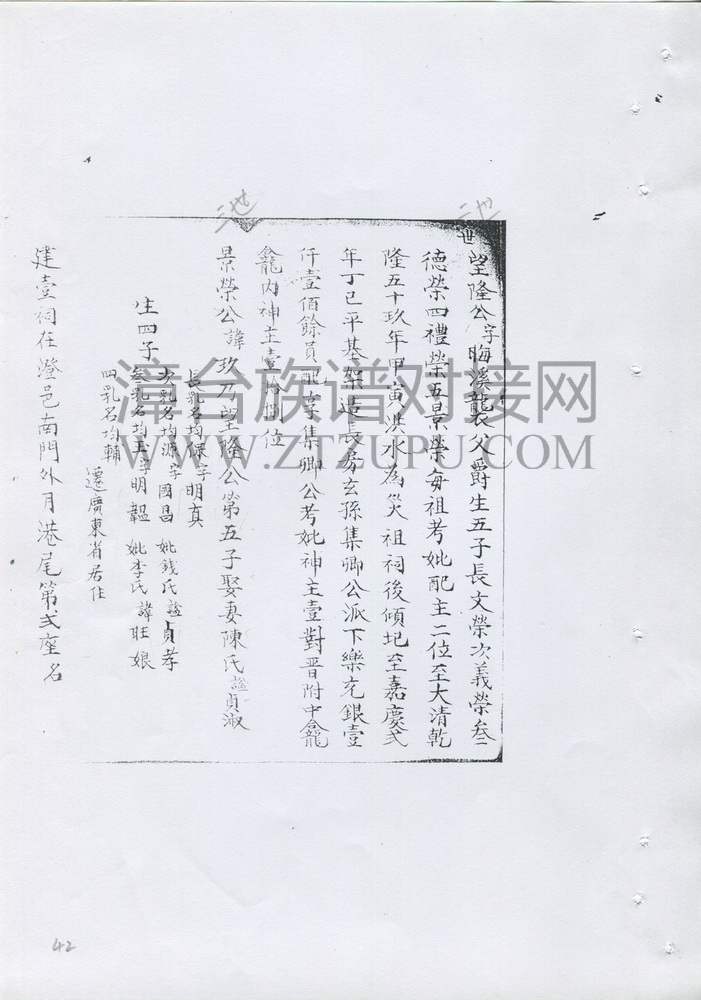 三世
三世
世
望隆公字晦溪襲父爵生五子長文榮次義榮叁
德榮四禮榮五景榮每祖考妣配主二位至大清乾
隆五十玖年甲寅洪水為災祖祠後傾圮至嘉慶弍
年丁巳平基架造長房玄孫集卿公派下樂充銀壹
仟壹佰餘員配享集卿公考妣神主壹對晋附中龕
龕内神主壹拾捌位
景榮公諱玖乃望隆公第五子娶妻陳氏謚貞淑
長乳名均保字明真
生四子
次乳名均源字國昌 妣錢氏謚貞孝
叁乳名均玉字明韞 妣李氏諱旺娘
四乳名均輔 遷廣東省居住
建壹祠在澄邑南門外月港尾第弍座名
漳台族谱对接网
WWW.ZTZUPU.COM
42